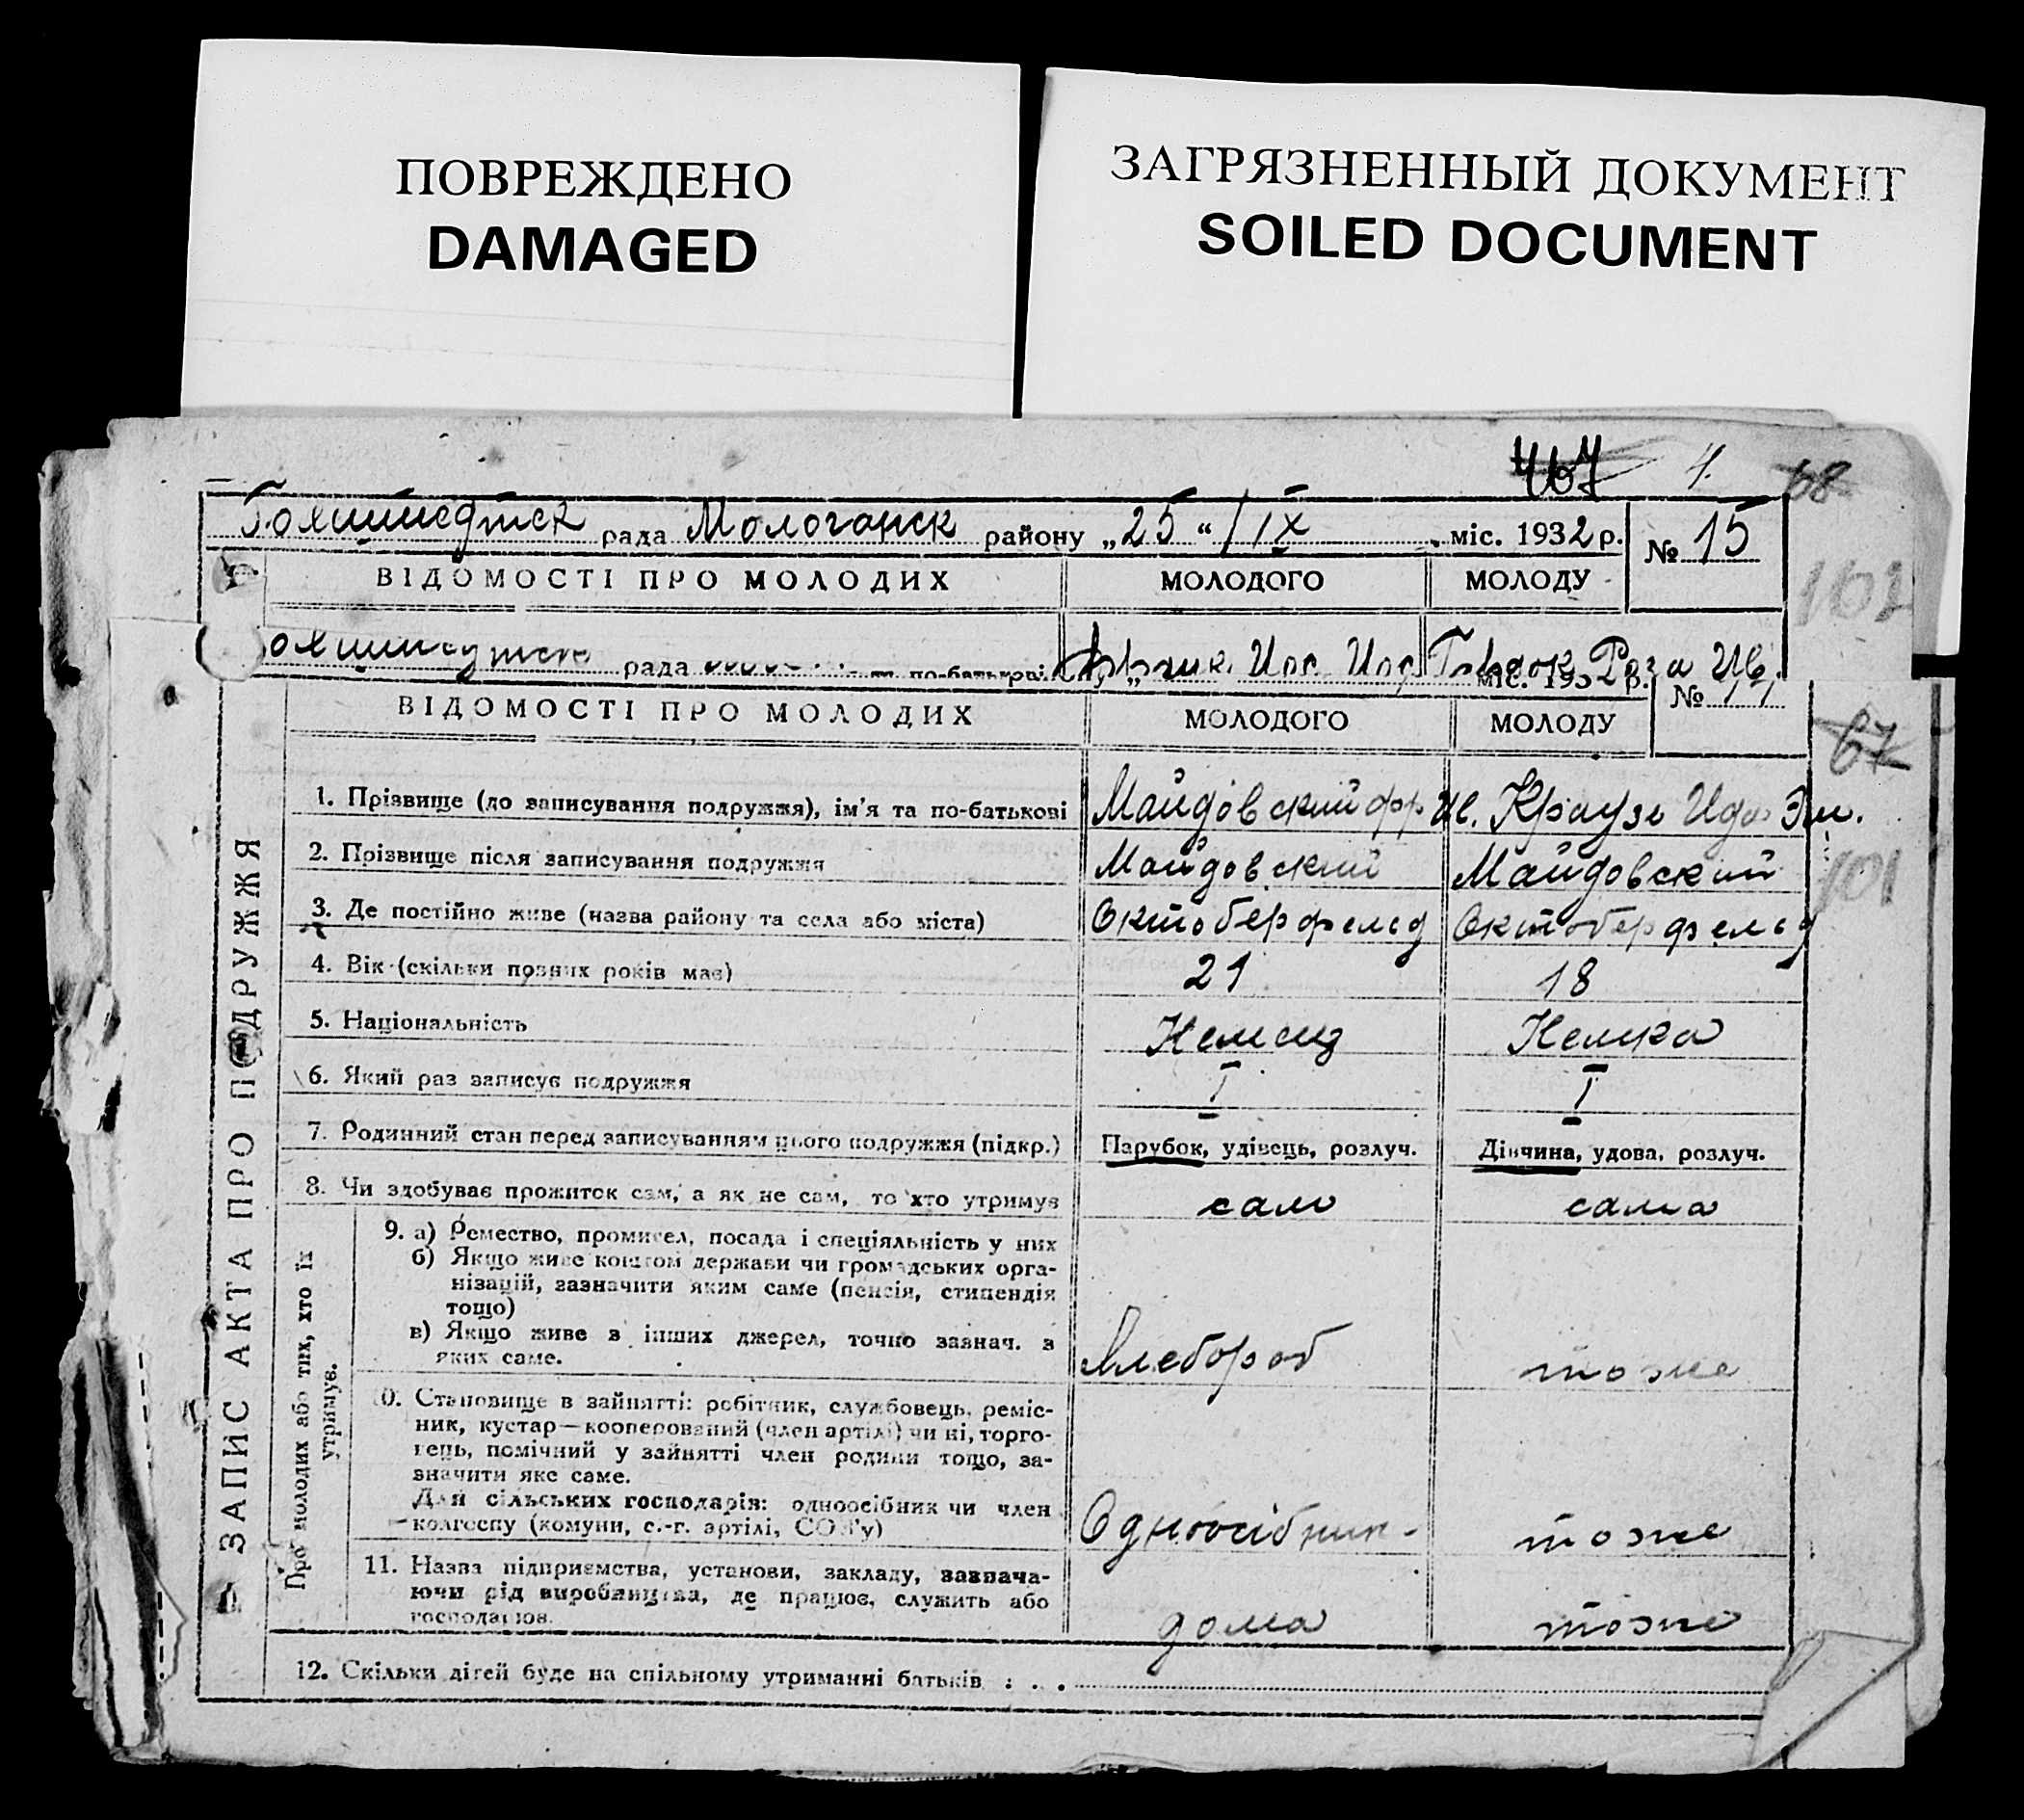 ПОВРЕЖДЕНО
DAMAGED
ЗАГРЯЗНЕННЫЙ ДОКУМЕНТ
SOILED DOCUMENT
467 4. 68
рада Мологанск району „25“ / IX міс. 1932 р. № 15
ВІДОМОСТІ ПРО МОЛОДИХ МОЛОДОГО МОЛОДУ
102
рада по-батькові Иос. Иос. Роза Ив.
міс. 193 р. №
ВІДОМОСТІ ПРО МОЛОДИХ МОЛОДОГО МОЛОДУ
67
ЗАПИС АКТА ПРО ПОДРУЖЖЯ
1. Прізвище (до записування подружжя), ім'я та по-батькові Майдовский фр Ив. Краузе Ида Эм.
2. Прізвище після записування подружжя Майдовский Майдовский
101
3. Де постійно живе (назва району та села або міста) Октоберфельд Октоберфельд
4. Вік (скільки повних років має) 21 18
5. Національність Немец Немка
6. Який раз записує подружжя I I
7. Родинний стан перед записуванням цього подружжя (підкр.) Парубок, удівець, розлуч. Дівчина, удова, розлуч.
8. Чи здобуває прожиток сам, а як не сам, то хто утримує сам сама
Про молодих або тих, хто їх утримує.
9. а) Ремество, промисел, посада і спеціяльність у них
б) Якщо живе коштом держави чи громадських орга-
нізацій, зазначити яким саме (пенсія, стипендія
тощо)
в) Якщо живе з інших джерел, точно зазнач. з
яких саме. Хлебороб тоже
10. Становище в зайнятті: робітник, службовець, реміс-
ник, кустар—кооперований (член артілі) чи ні, торго-
вець, помічний у зайнятті член родини тощо, за-
значити яке саме.
Для сільських господарів: одноосібник чи член
колгоспу (комуни, с.-г. артілі, СОЗ'у) Одноосібник - тоже
11. Назва підприємства, установи, закладу, зазнача-
ючи рід виробництва, де працює, служить або
господарює. дома тоже
12. Скільки дітей буде на спільному утриманні батьків